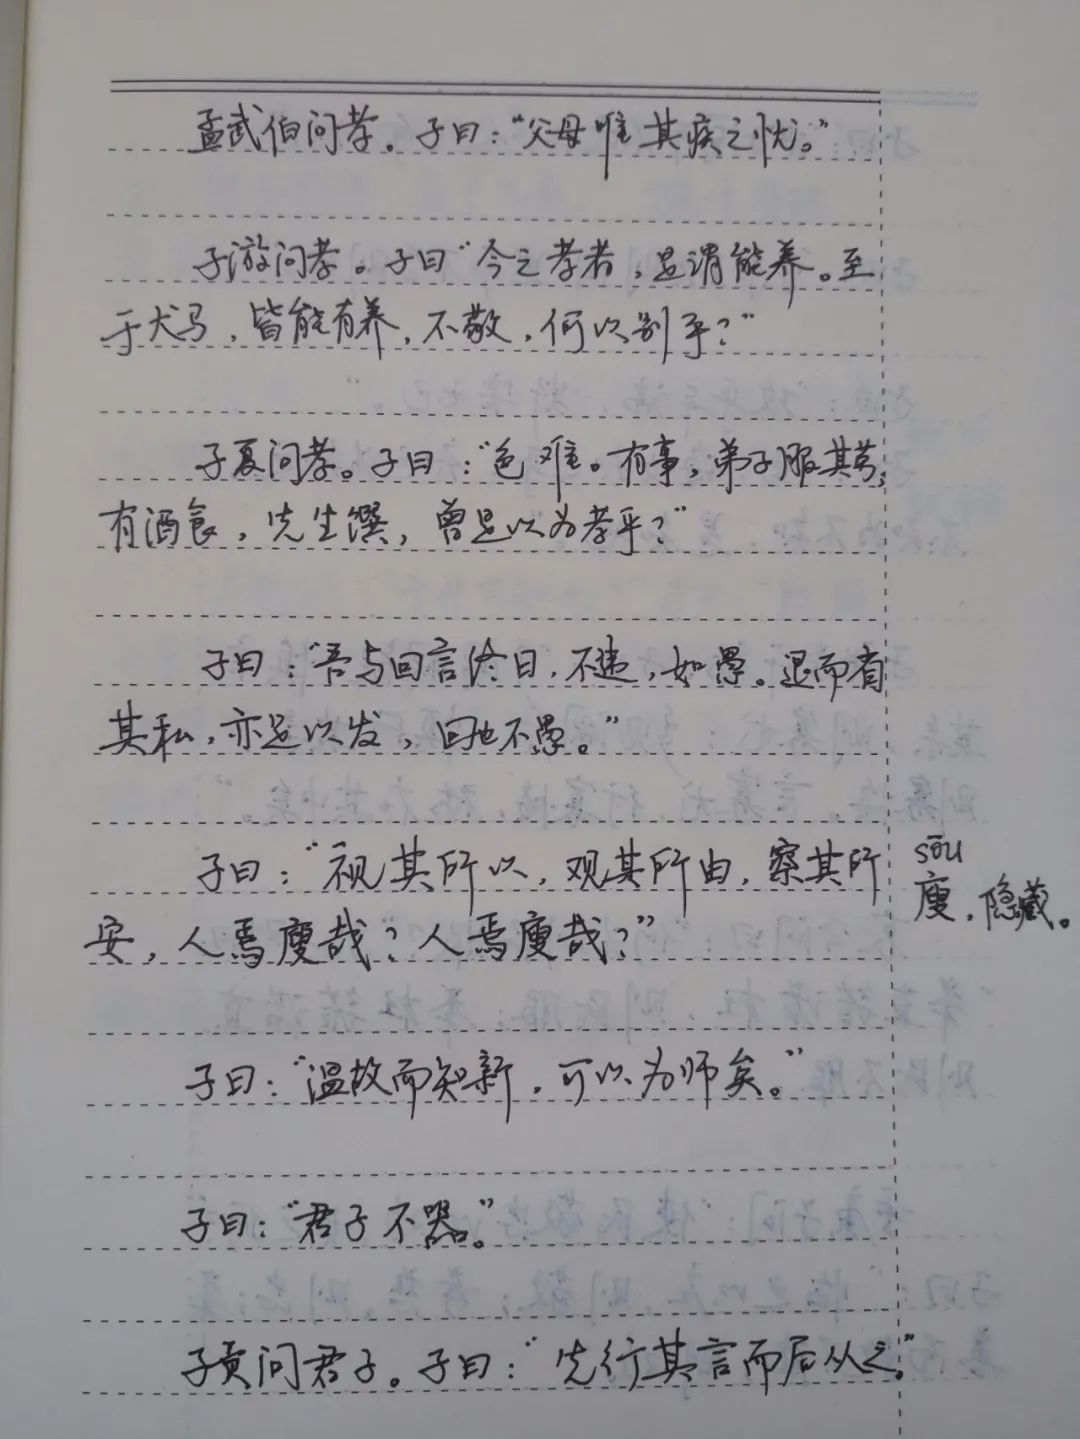 孟武伯问孝。子曰：“父母唯其疾之忧。”
子游问孝。子曰“今之孝者，是谓能养。至
于犬马，皆能有养，不敬，何以别乎？”
子夏问孝。子曰：“色难。有事，弟子服其劳，
有酒食，先生馔，曾是以为孝乎？”
子曰：“吾与回言终日，不违，如愚。退而省
其私，亦足以发，回也不愚。”
子曰：“视其所以，观其所由，察其所
安，人焉廋哉？人焉廋哉？”
sōu
廋，隐藏。
子曰：“温故而知新，可以为师矣。”
子曰：“君子不器。”
子贡问君子。子曰：“先行其言而后从之。”